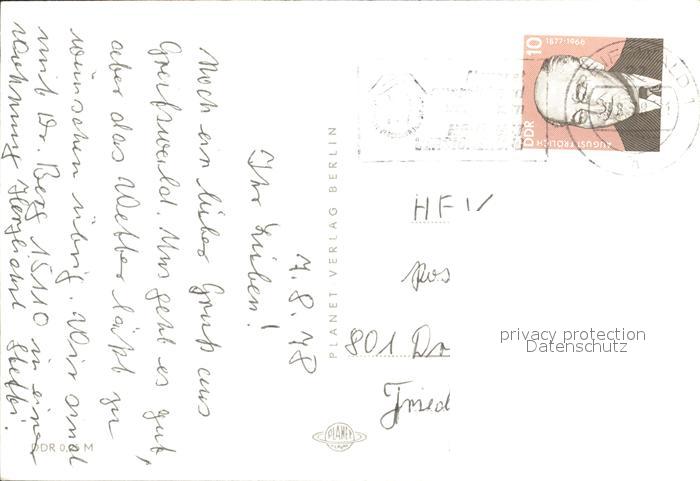 7.8.78
Ihr Lieben!
Noch ein lieber Gruß aus
Greifswald. Uns geht es gut,
aber das Wetter läßt zu
wünschen übrig. Wir sind
mit Dr. Berg 15110 in einer
Herzlichst Steffi.
DDR 0, M
PLANET VERLAG BERLIN
PLANET
10
1877-1966
DDR
AUGUST FRÖLICH
HFV
801 Dr
Fried
privacy protection
Datenschutz